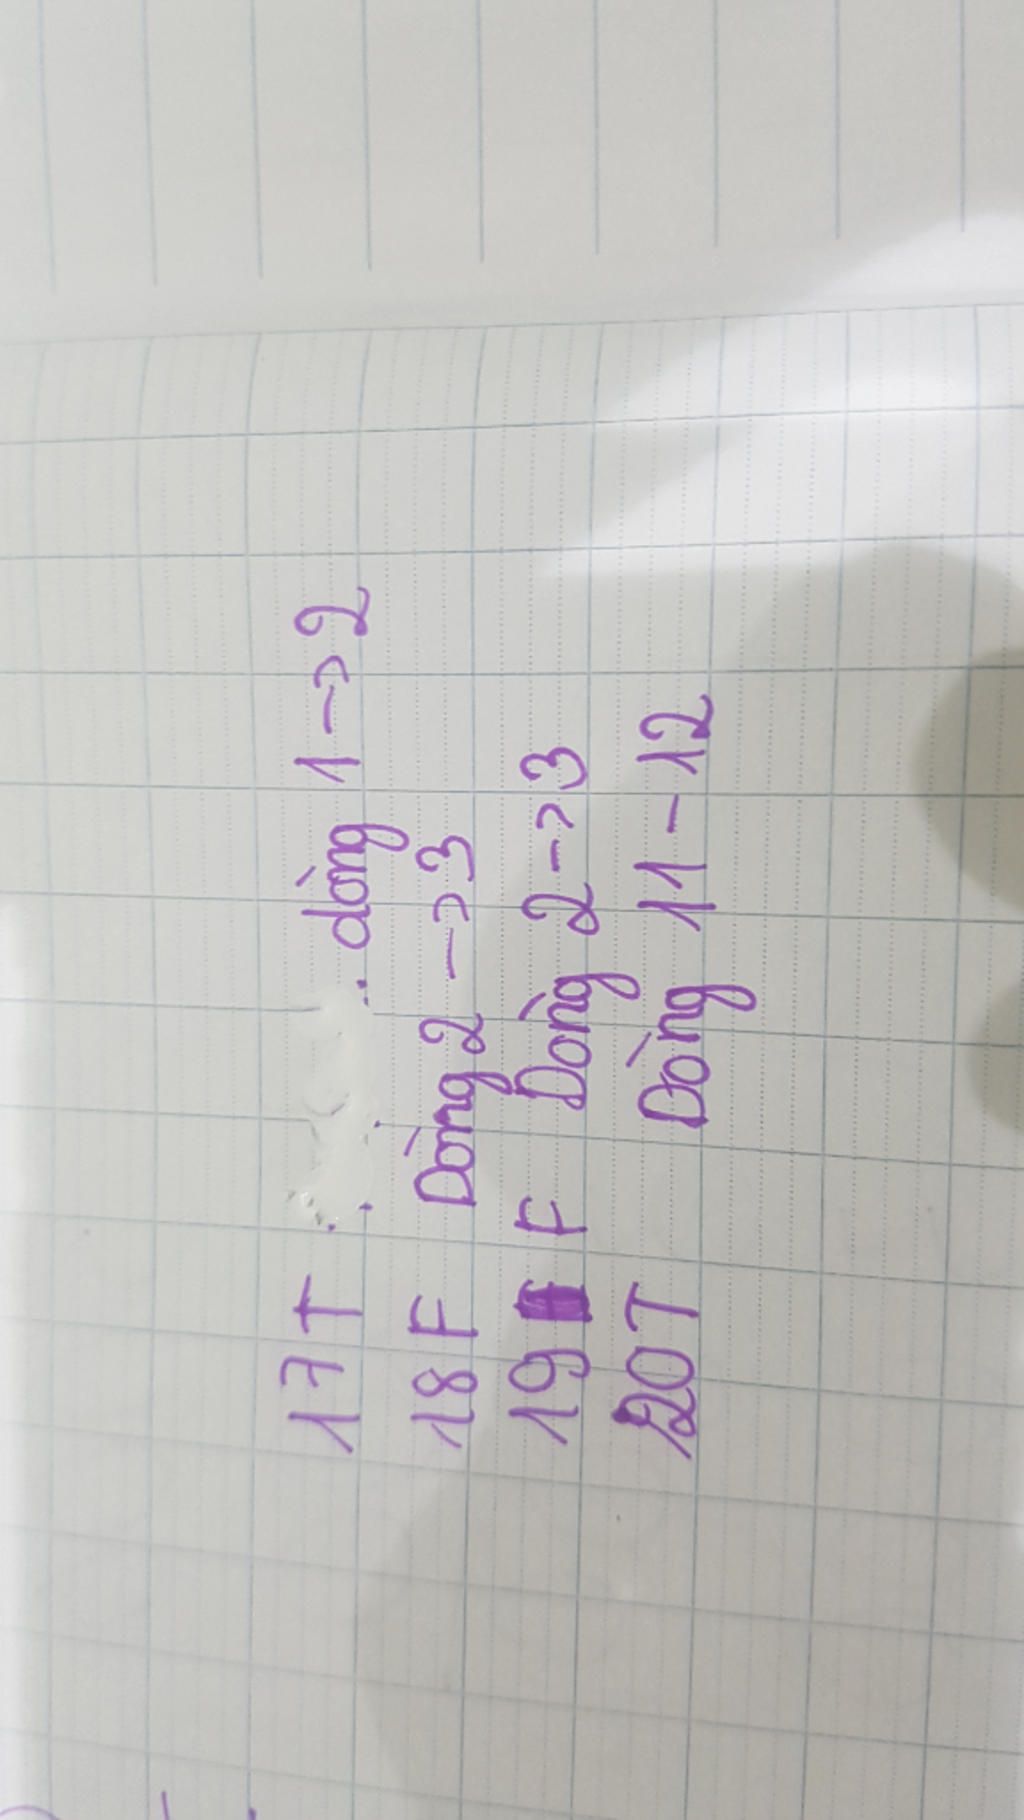 17 T dòng 1 -> 2
18 F Dòng 2 -> 3
19 F Dòng 2 -> 3
20 T Dòng 11 - 12